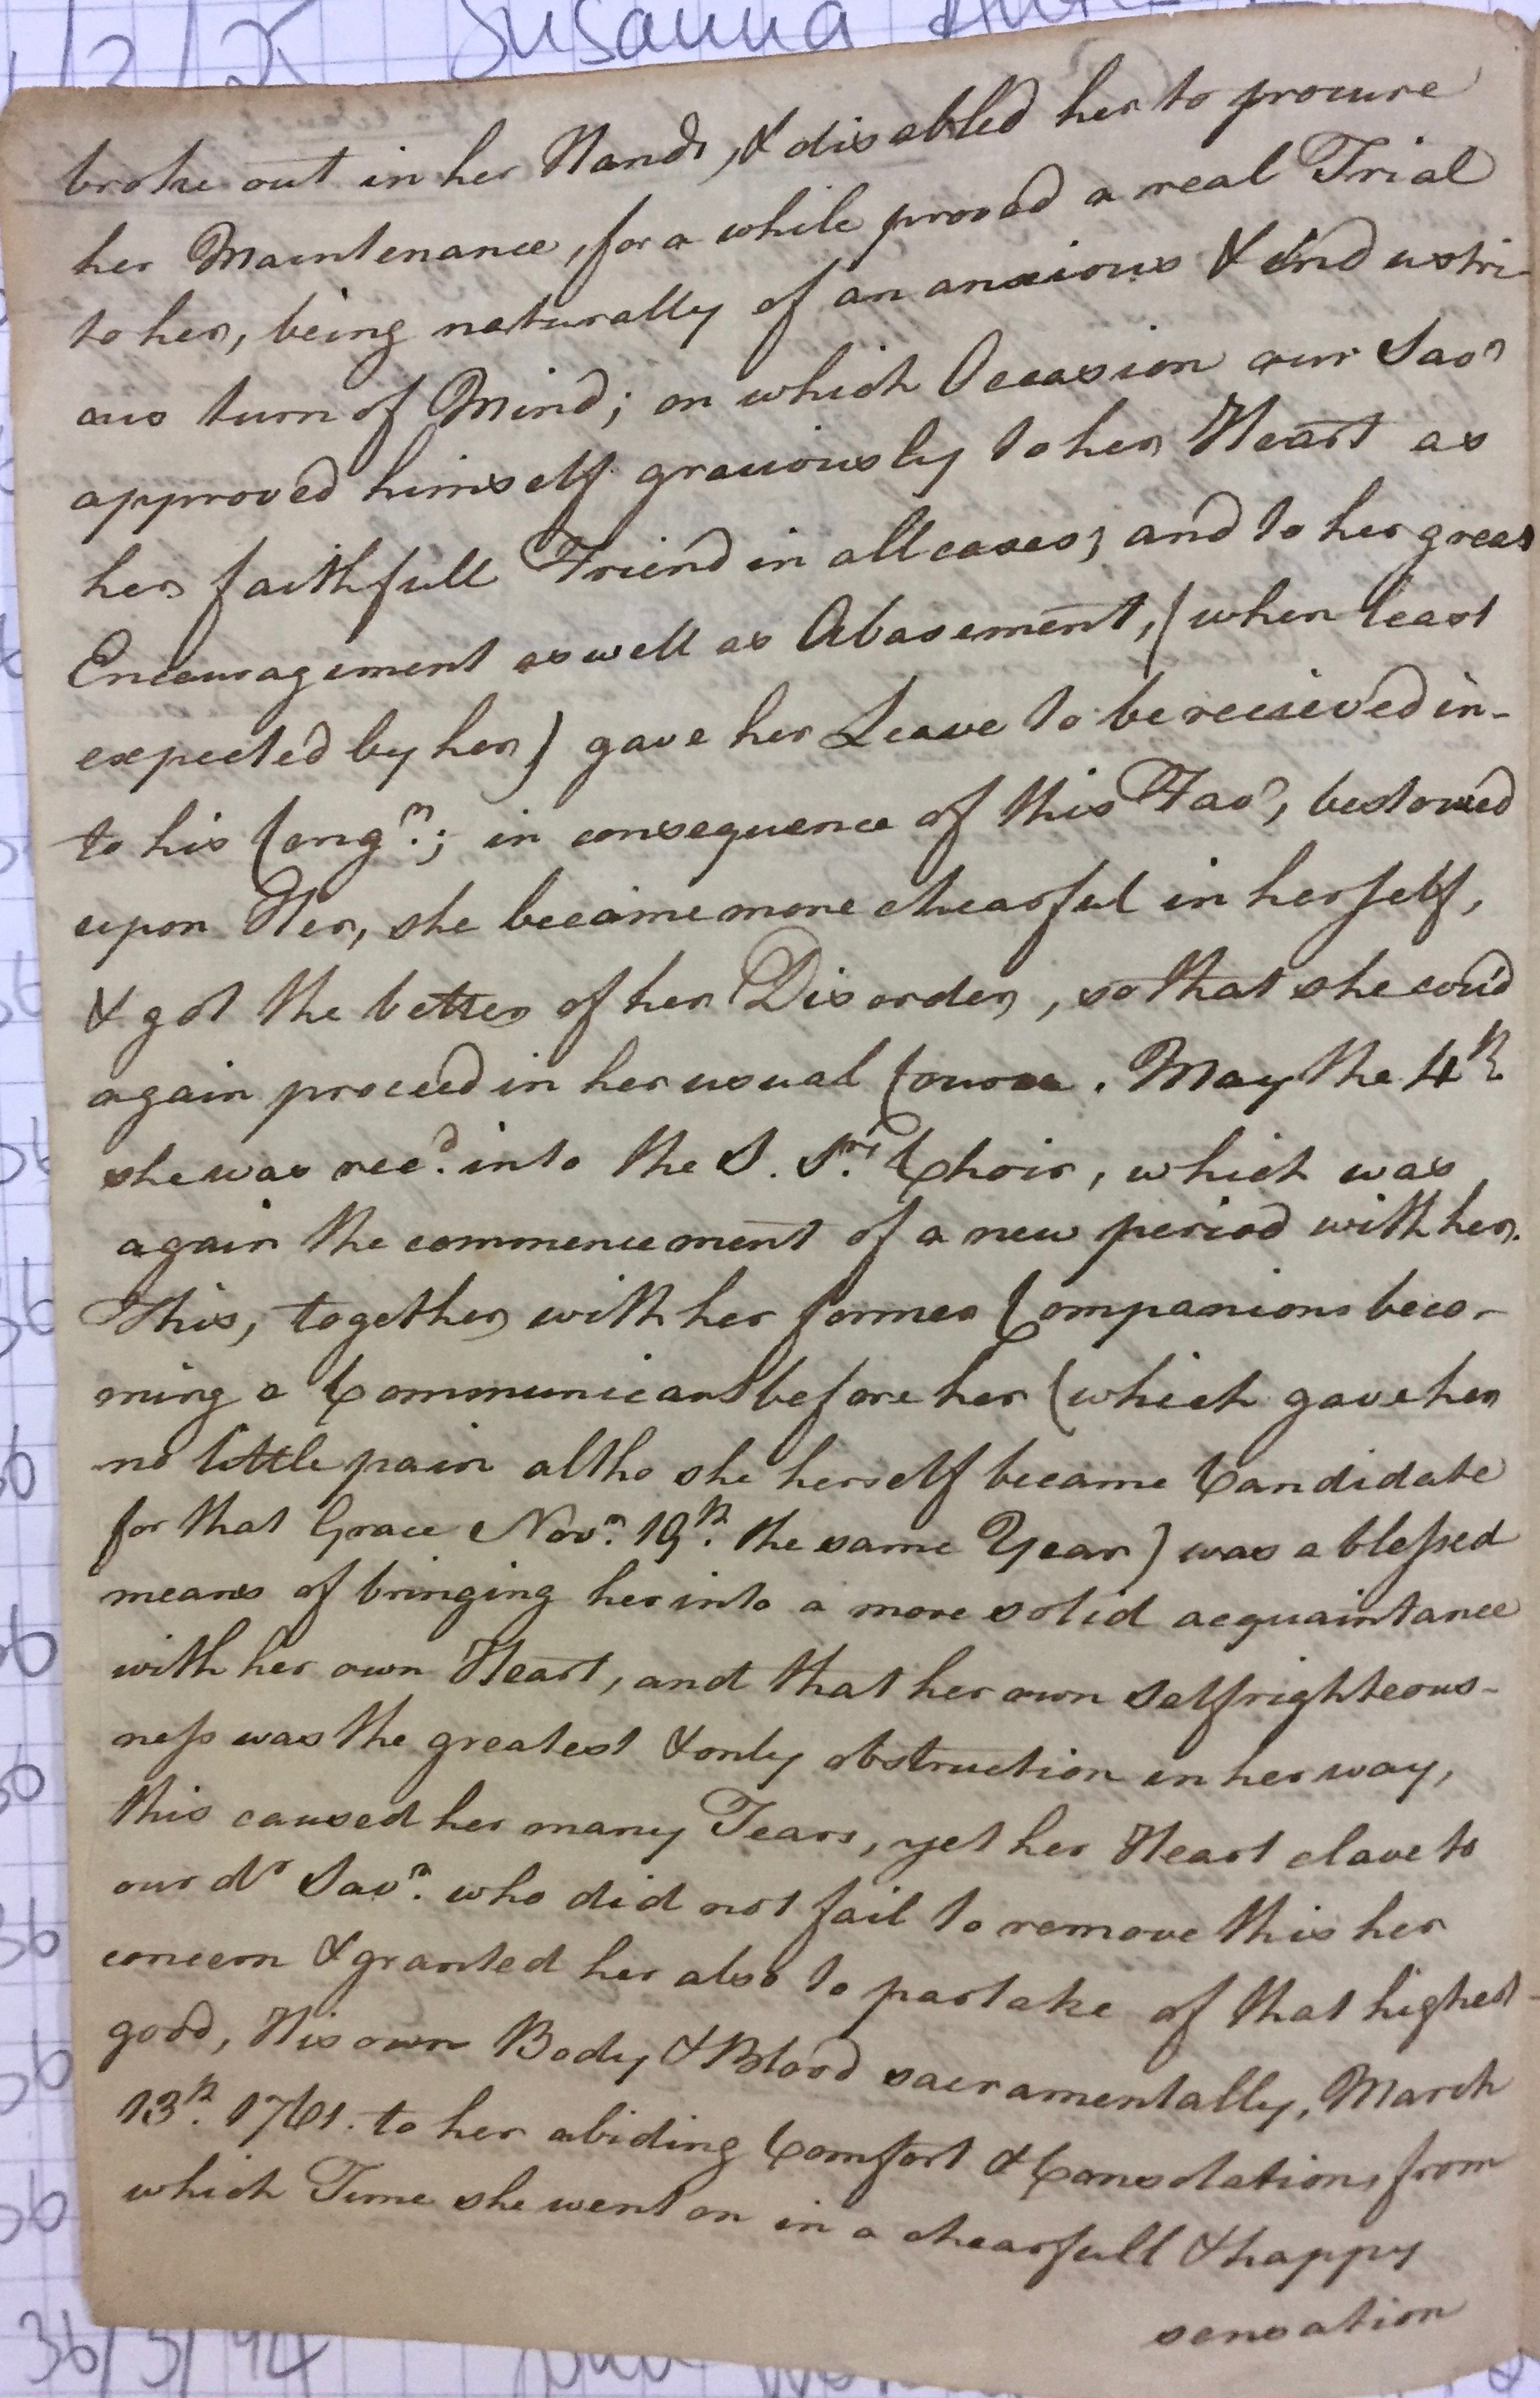 Susanna
broke out in her Hands, & disabled her to procure
her Maintenance, for a while proved a real Trial
to her, being naturally of an anxious & industri-
ous turn of Mind; on which Occasion our Savr
approved himself graciously to her Heart as
her faithfull Friend in all cases; and to her great
Encouragement as well as Abasement, (when least
expected by her) gave her Leave to be recieved in-
to his Congn.; in consequence of this Favr, bestowed
upon Her, she became more chearful in herself,
& got the better of her Disorder, so that she cou'd
again proceed in her usual Course. May the 4th
she was recd. into the S. Srs. Choir, which was
again the commencement of a new period with her.
This, together with her former Companions beco-
ming a Communicant before her (which gave her
no little pain altho she herself became Candidate
for that Grace Novr. 19th. the same Year) was a blessed
means of bringing her into a more solid acquaintance
with her own Heart, and that her own selfrighteous-
ness was the greatest & only obstruction in her way,
this caused her many Tears, yet her Heart clave to
our dr Savr. who did not fail to remove this her
concern & granted her also to partake of that highest
good, His own Body & Blood sacramentally, March
13th. 1761. to her abiding Comfort & Consolation, from
which Time she went on in a chearfull & happy
sensation
36/5/94